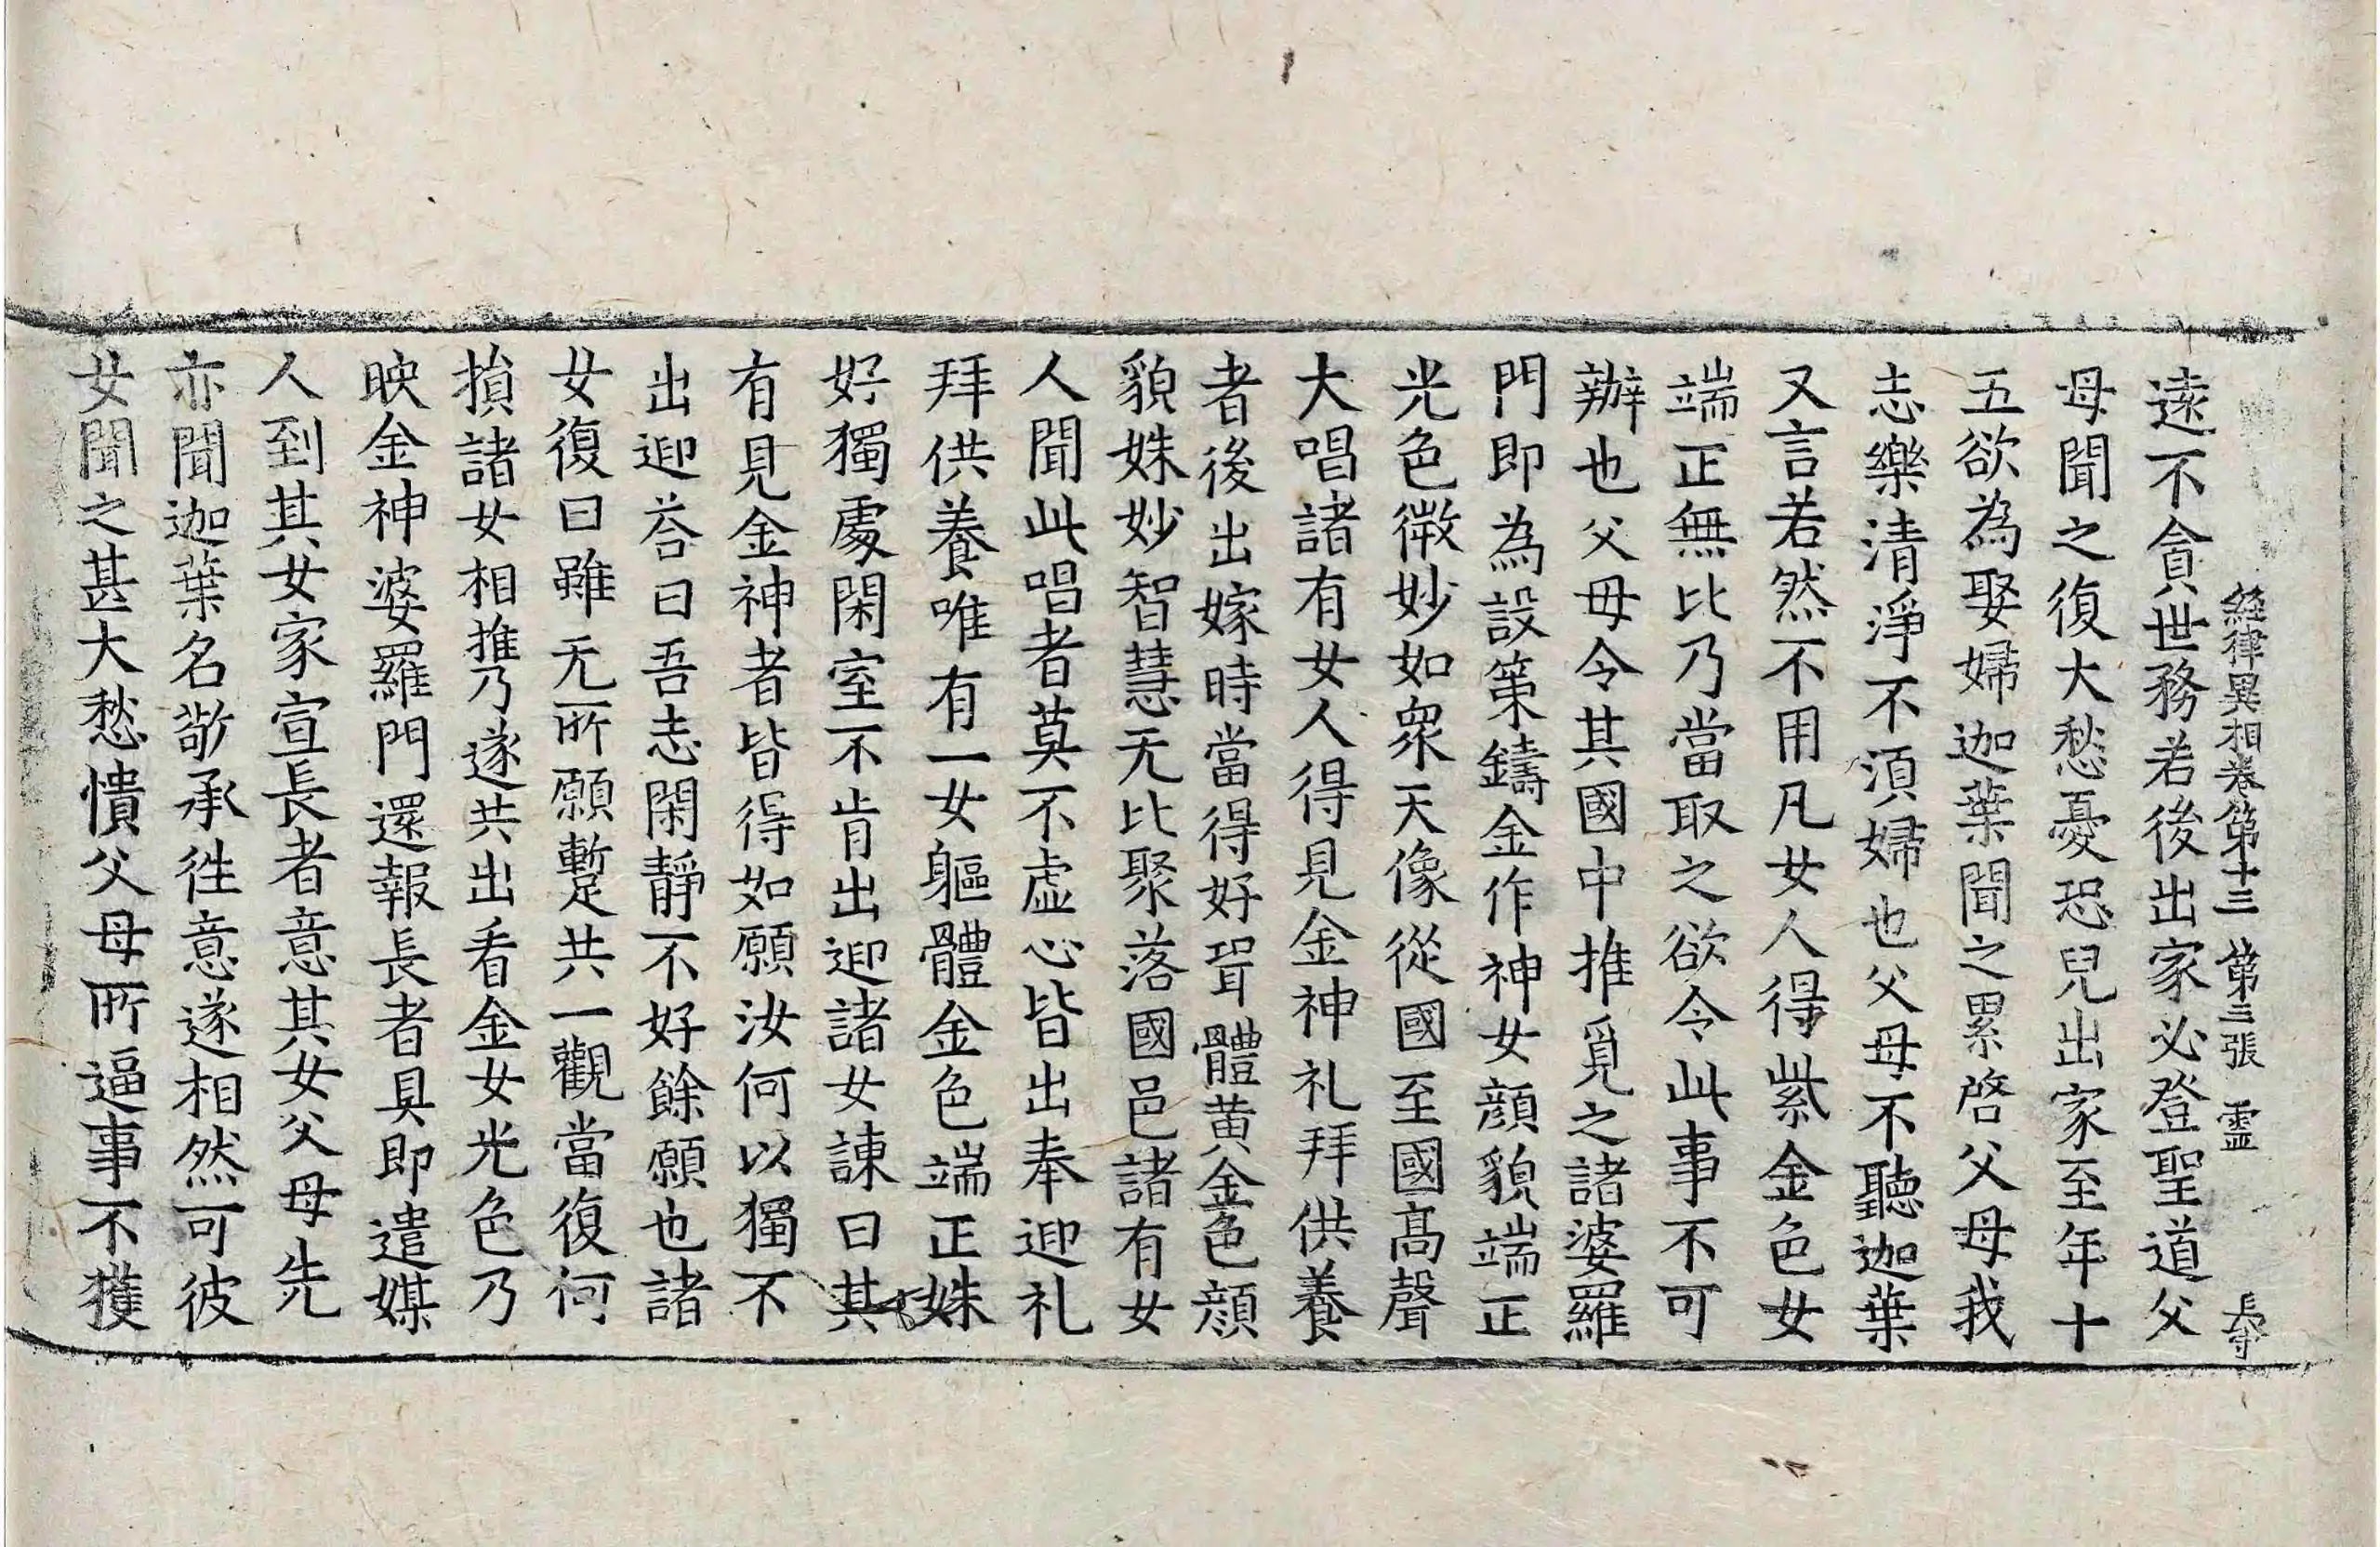 經律異相卷第十三 第三張 霊
遠不貪世務若後出家必登聖道父
母聞之復大愁憂恐兒出家至年十
五欲為娶婦迦葉聞之累啓父母我
志樂清淨不湏婦也父母不聽迦葉
又言若然不用凡女人得紫金色女
端正無比乃當取之欲令此事不可
辦也父母令其國中推覓之諸婆羅
門即為設策鑄金作神女顔貌端正
光色微妙如衆天像從國至國髙聲
大唱諸有女人得見金神礼拜供養
者後出嫁時當得好聟體黄金色顔
貌姝妙智慧无比聚落國邑諸有女
人聞此唱者莫不虚心皆出奉迎礼
拜供養唯有一女軀體金色端正姝
好獨處閑室不肯出迎諸女諫曰其
有見金神者皆得如願汝何以獨不
出迎荅曰吾志閑靜不好餘願也諸
女復曰雖无所願暫共一觀當復何
損諸女相推乃遂共出看金女光色乃
映金神婆羅門還報長者具即遣媒
人到其女家宣長者意其女父母先
亦聞迦葉名敬承徃意遂相然可彼
女聞之甚大愁憒父母所逼事不獲